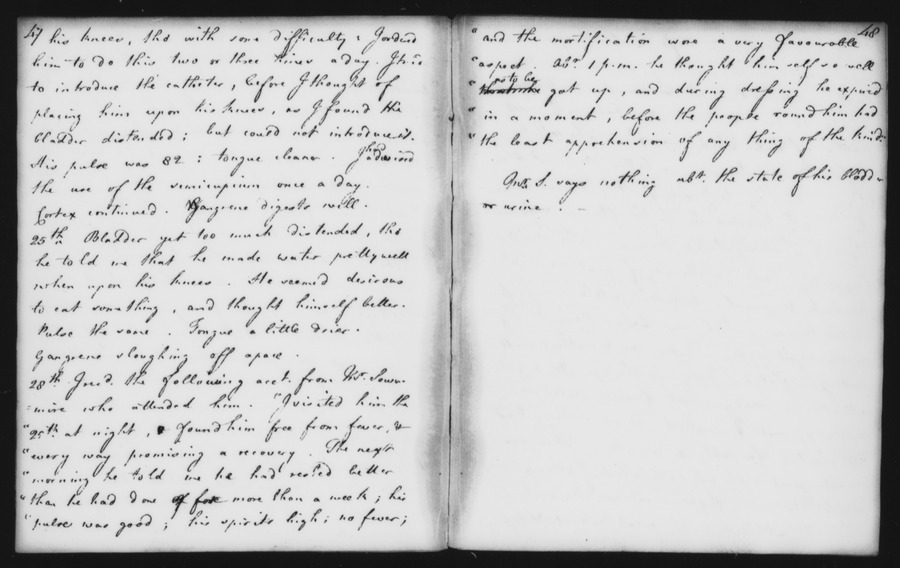 47 his knees, tho with some difficulty: I ordered
him to do this two or three times a day. I tried
to introduce the catheter, before I thought of
placing him upon his knees, as I found the
bladder distended; but could not introduce it.
His pulse was 82: tongue cleaner. I then advised
the use of the semicupium once a day.
Cortex continued. Gangrene digests well.
25th Bladder yet too much distended, tho
he told me that he made water pretty well
when upon his knees. He seemed desirous
to eat something, and thought himself better.
Pulse the same. Tongue a little drier.
Gangrene sloughing off apace.
28th I recd. the following acct. from Mr.
=more who attended him. "I visited him the
"25th at night, found him free from fever, &
"every way promising a recovery. The next
"morning he told me he had rested better
"than he had done of for more than a week; his
"pulse was good; his spirits high; no fever;
48
"and the mortification wore a very favourable
"aspect. Abt. 1 p.m. he thought himself so well
as to be
" got up, and during dressing he expired
"in a moment, before the people round him had
"the least apprehension of any thing of the kind."
S. says nothing abt. the state of his bladder
or urine. –